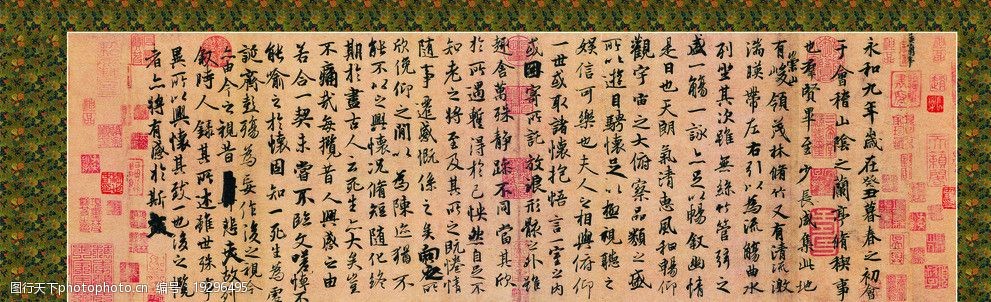 永和九年歲在癸丑暮春之初會
于會稽山陰之蘭亭脩稧事
也群賢畢至少長咸集此地
有崇山峻領茂林脩竹又有清流激
湍暎帶左右引以為流觴曲水
列坐其次雖無絲竹管弦之
盛一觴一詠亦足以暢敘幽情
是日也天朗氣清惠風和暢仰
觀宇宙之大俯察品類之盛
所以遊目騁懷足以極視聽之
娛信可樂也夫人之相與俯仰
一世或取諸懷抱悟言一室之內
或因寄所託放浪形骸之外雖
趣舍萬殊靜躁不同當其欣
於所遇蹔得於己怏然自足不
知老之將至及其所之既惓情
隨事遷感慨係之矣向之所
欣俛仰之閒以為陳迹猶不
能不以之興懷況脩短隨化終
期於盡古人云死生亦大矣豈
不痛哉每攬昔人興感之由
若合一契未嘗不臨文嗟悼不
能喻之於懷固知一死生為虛
誕齊彭殤為妄作後之視今
亦由今之視昔悲夫故列
敘時人錄其所述雖世殊事
異所以興懷其致一也後之攬
者亦將有感於斯文
图行天下 photophoto.cn 编号：19296495